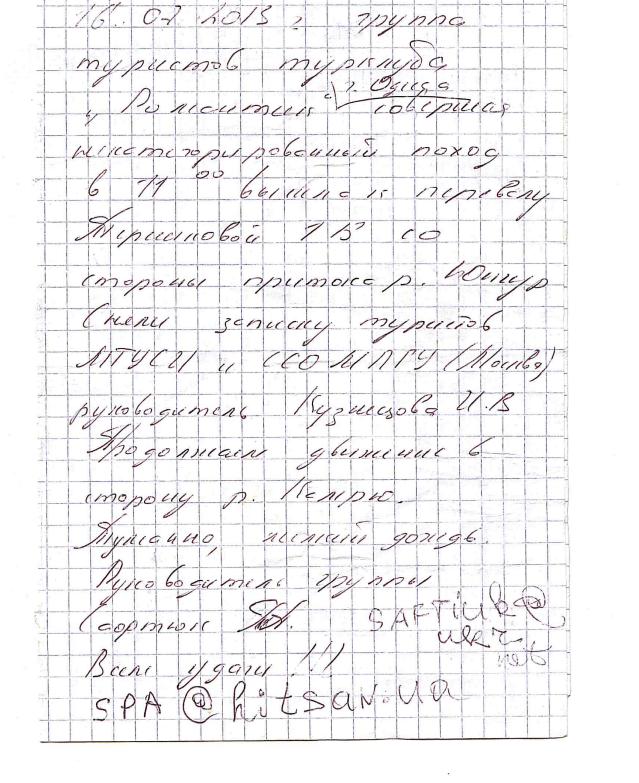 16. 07 2013 г. группа
туристов турклуба
„Романтик" г. Одесса совершая
некатегорированный поход
в 11 00 вышла к перевалу
1Б со
стороны притока р.
Сняли записку туристов
МТУСИ и ССО МПГУ (Москва)
руководитель Кузнецова И.В
Продолжаем движение в
сторону р.
Туманно, мелкий дождь.
Руководитель группы
Вам удачи !!!
SAFTIUK@
ukr
net
SPA@hitsav.ua